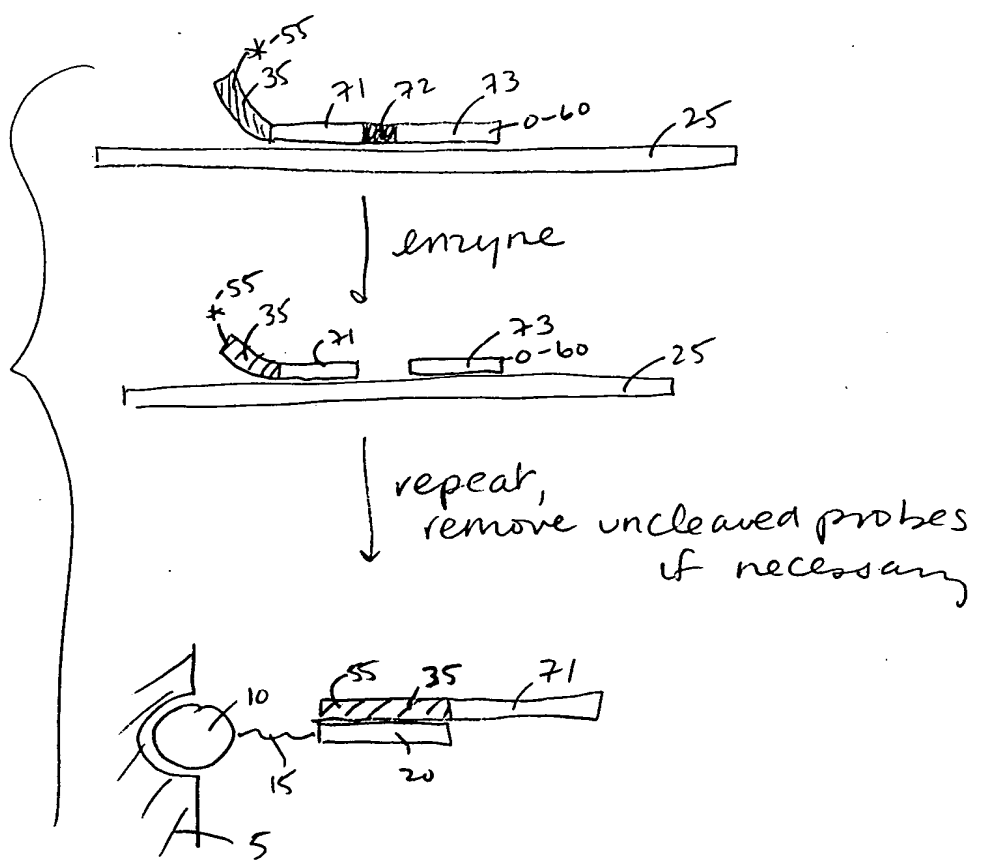 *-55
35
71
72
73
0-60
25
enzyne
*-55
35
71
73
0-60
25
repeat,
remove uncleaved probes
if necessary
55
35
71
10
15
20
5